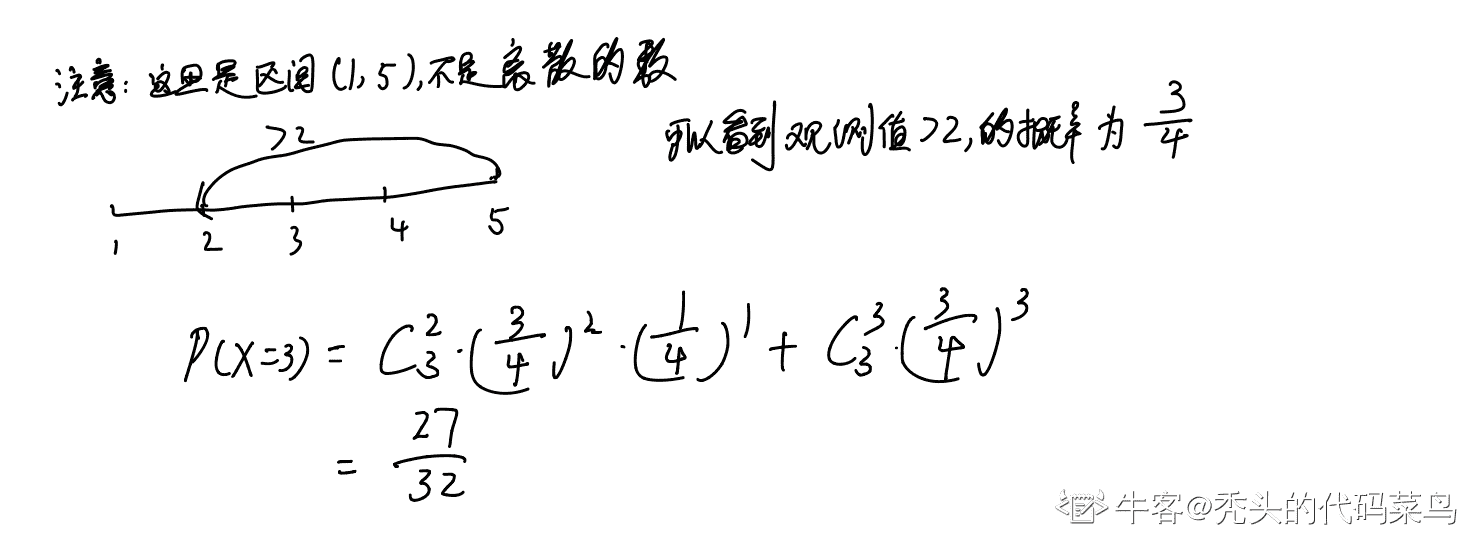 注意：这里是区间(1,5),不是离散的数
可以看到观测值>2,的概率为 3/4
>2
1 2 3 4 5
P(X=3) = C₃²·(3/4)²·(1/4)¹ + C₃³·(3/4)³
= 27/32
牛客@秃头的代码菜鸟